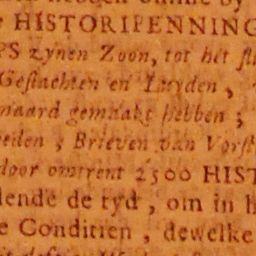 HISTORIPENNING
PS zynen Zoon, tot het
Geslachten en Luyden,
naard gemaakt hebben ;
Brieven van Vorst
door omtrent 2500 HIST
lende de tyd, om in h
e Conditien, dewelke